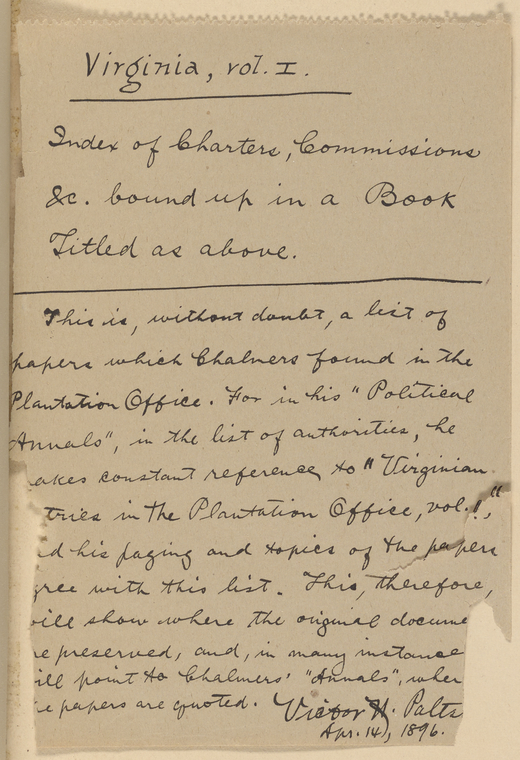 Virginia, vol. I.
Index of Charters, Commissions
&c. bound up in a Book
Titled as above.
This is, without doubt, a list of
papers which Chalmers found in the
Plantation Office. For in his "Political
Annals", in the list of authorities, he
akes constant reference to "Virginian
tries in the Plantation Office, vol. I,"
d his paging and topics of the papers
gree with this list. This, therefore,
ill show where the original docume
e preserved, and, in many instance
ill point to Chalmers' "Annals", wher
e papers are quoted. Victor H. Palts
Apr. 14, 1896.